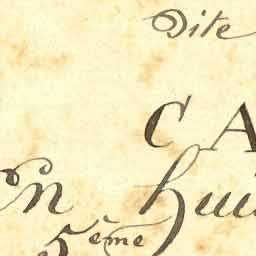 Dite
C A
En hui
5ème